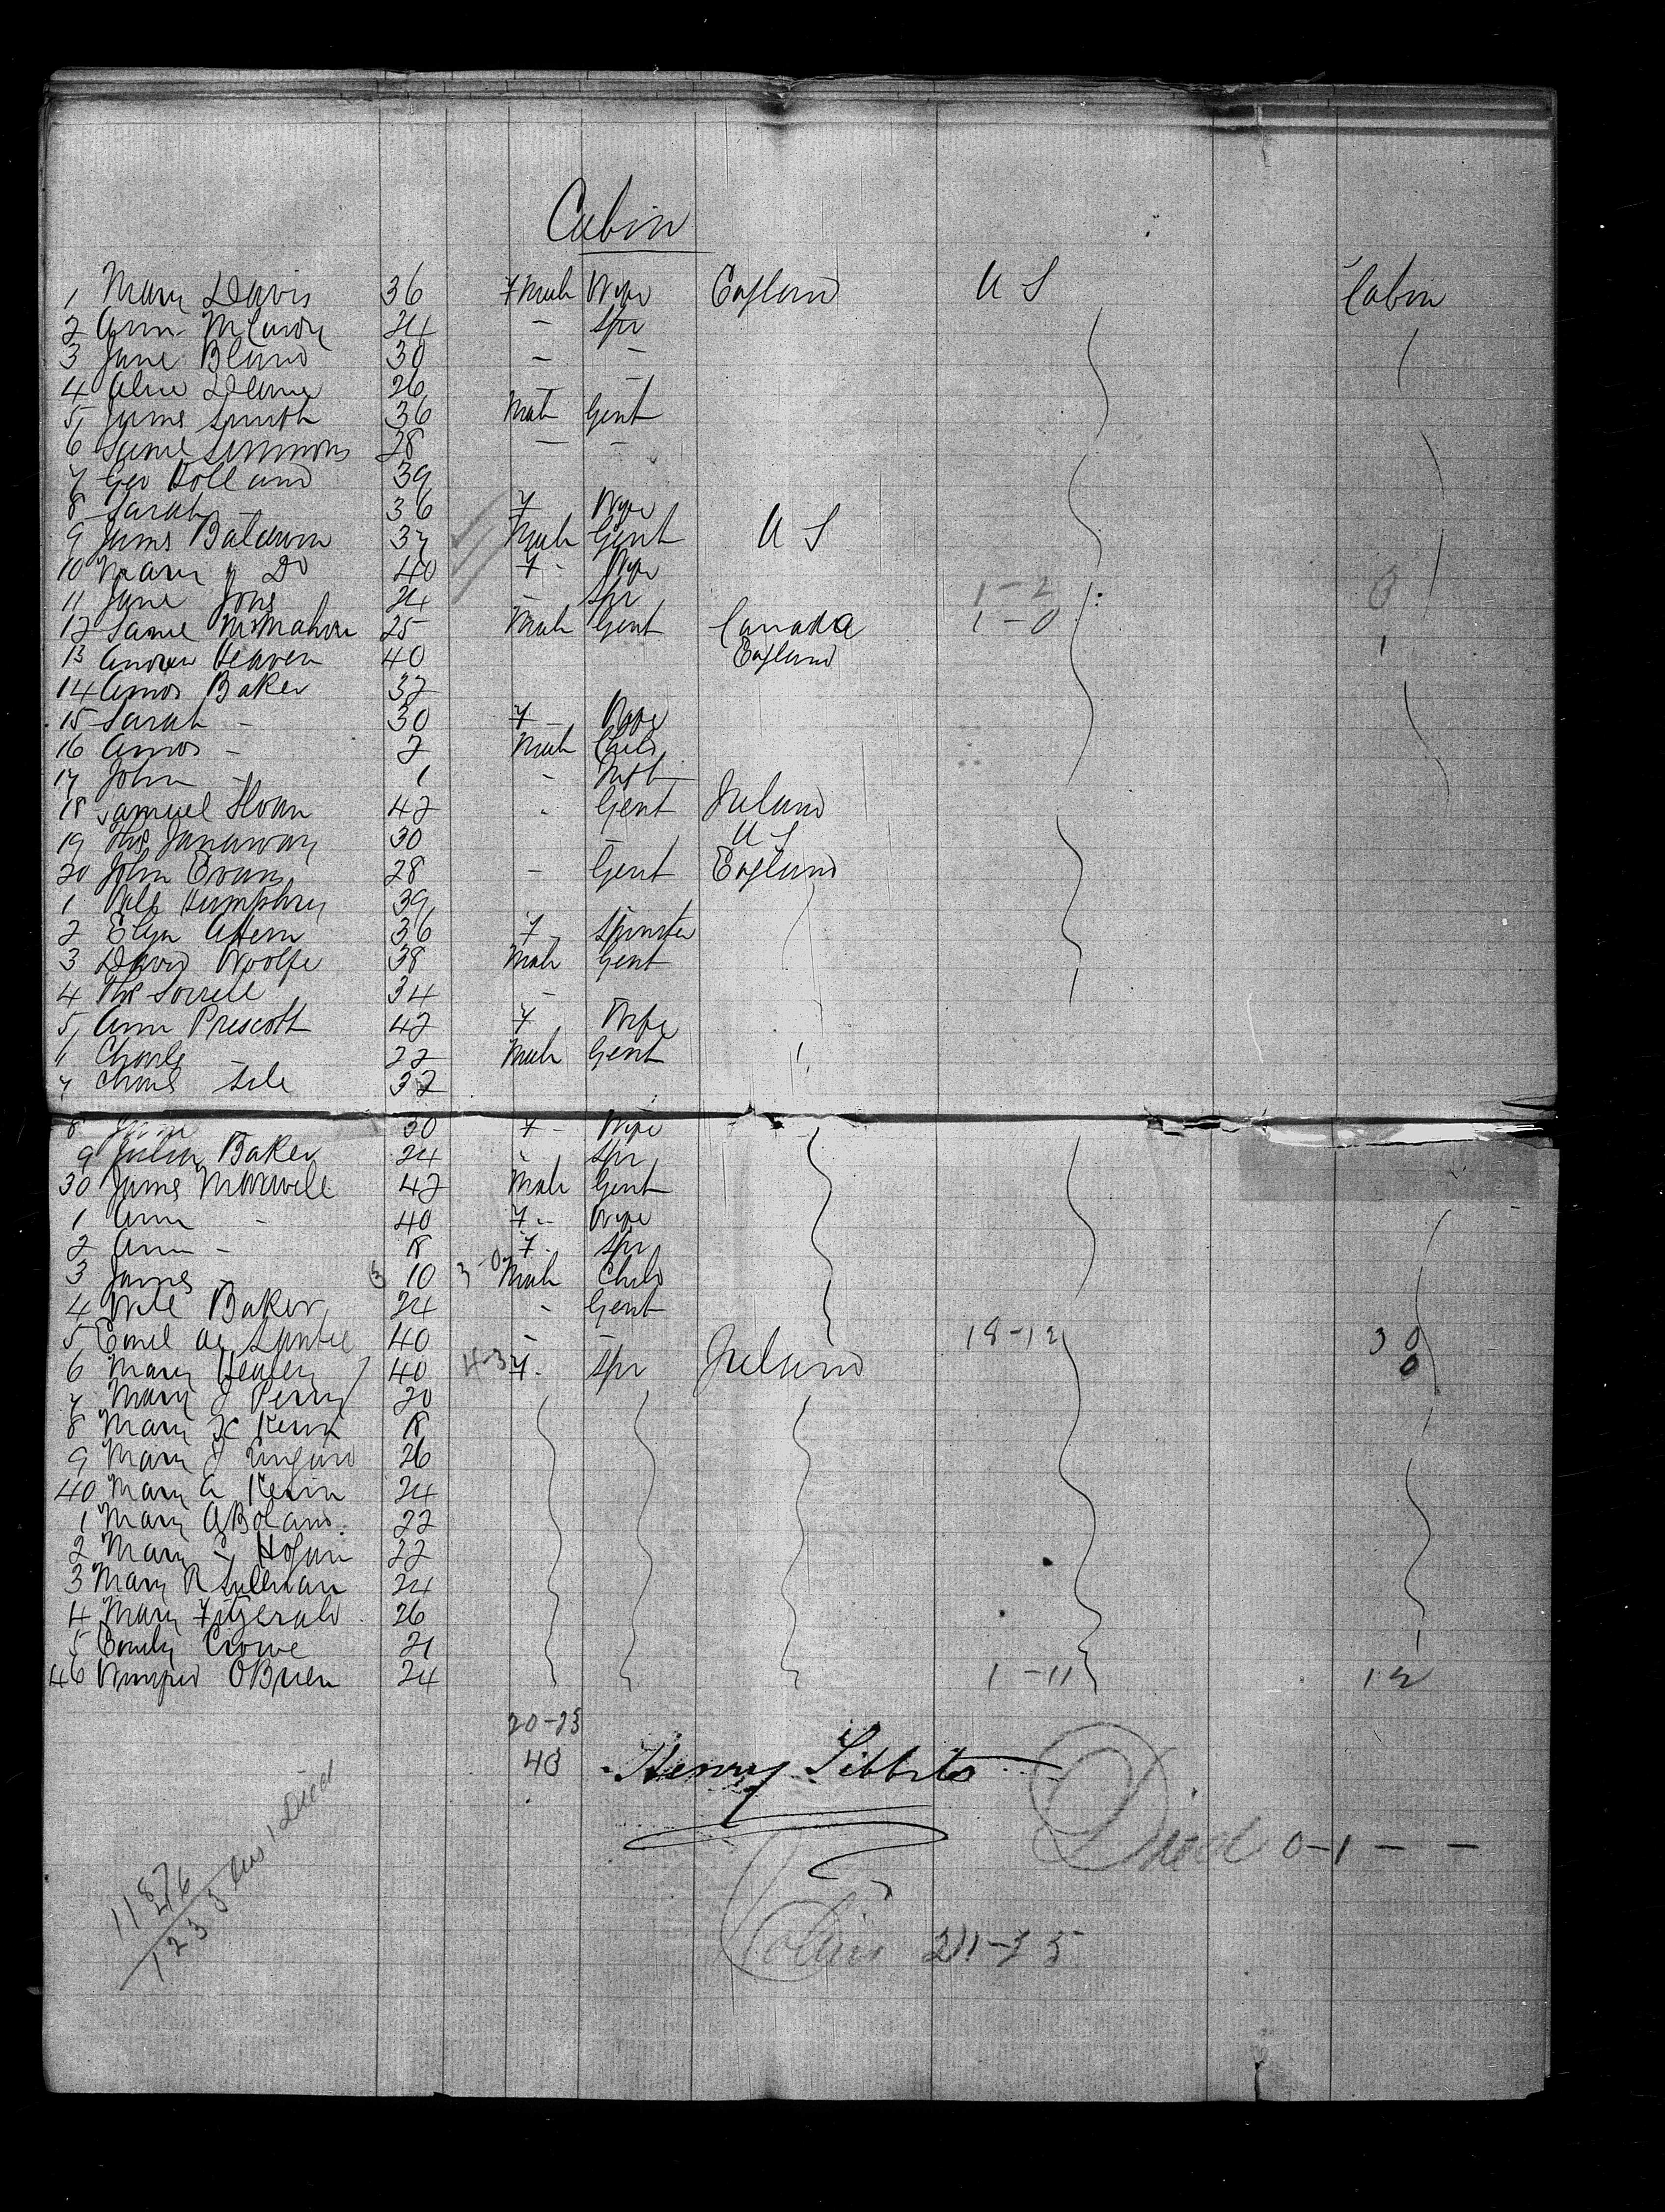 Cabin
1 Mary Davis 36 Female Wife England U S Cabin
2 Ann 24 - Spr
3 Jane Bland 30 - -
4 Alice 26 - -
5 James Smith 36 Male Gent
6 Simmons 28 - -
7 Geo Holland 39
8 Sarah - 36 F Wife
9 James Baldwin 37 Male Gent U S
10 Mary Do 40 F - Wife
11 Jane Jones 24 - Spr 1-2 0
12 McMahon 25 Male Gent Canada 1-0 1
13 Andrew Heaven 40 England
14 Amos Baker 32
15 Sarah - 30 F - Wife
16 Amos - 2 Male Child
17 John - 1 - Inft
18 Samuel Sloan 42 - Gent Ireland
19 Thos Janaway 30 - U S
20 John Evans 28 - Gent England
1 Humphry 39
2 Ahern 36 F - Spinster
3 David Woolfe 38 Male Gent
4 Thos Sorrell 34 -
5 Ann Prescott 42 F Wife
Charles 22 Male Gent
7 Chas 32
8 Jane 30 F - Wife
9 Julia Baker 24 - Spr
30 James Maxwell 42 Male Gent
1 Ann - 40 F - Wife
2 Ann - 18 F - Spr
3 James - 10 3-0 Male Child
4 Will Baker 24 - Gent
5 Emil de 40 - - 18-12 30
6 Mary Healey 40 4-3 F - Spr Ireland 0
7 Mary J Perry 20
8 Mary K Kerin 18
9 Mary J 26
40 Mary A Kerin 24
1 Mary A Boland 22
2 Mary - Hogan 22
3 Mary R Sullivan 24
4 Mary Fitzgerald 26
5 Emily Crowe 21
46 Winifred OBrien 24 1-11 12
20-23
43 Henry Tibbits
Died 0-1 - -
Cabin 21-25
1187
1233 1 Died